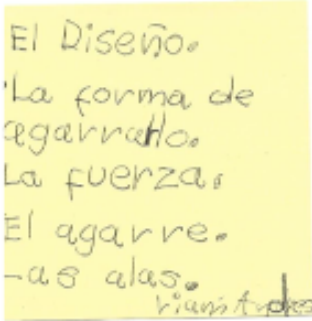 El Diseño.
La forma de
agarrarlo.
La fuerza.
El agarre.
Las alas.